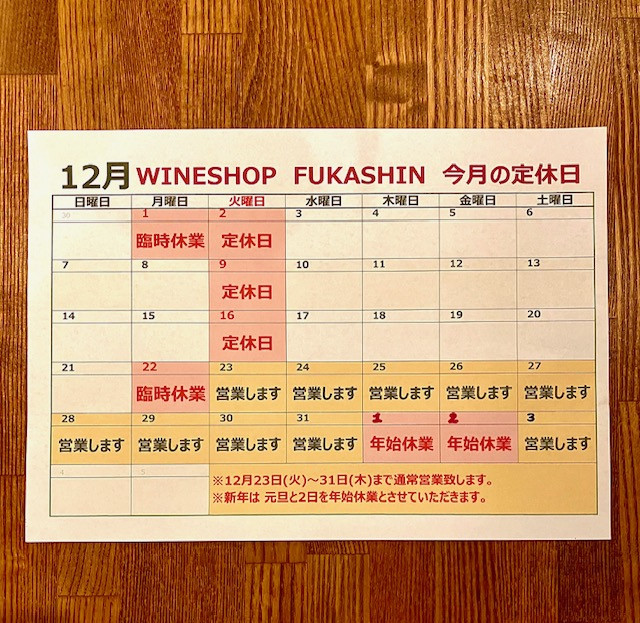 12月 WINESHOP FUKASHIN 今月の定休日
日曜日 月曜日 火曜日 水曜日 木曜日 金曜日 土曜日
30 1 2 3 4 5 6
臨時休業 定休日
7 8 9 10 11 12 13
定休日
14 15 16 17 18 19 20
定休日
21 22 23 24 25 26 27
臨時休業 営業します 営業します 営業します 営業します 営業します
28 29 30 31 1 2 3
営業します 営業します 営業します 営業します 年始休業 年始休業 営業します
4 5
※12月23日(火)～31日(木)まで通常営業致します。
※新年は 元旦と2日を年始休業とさせていただきます。